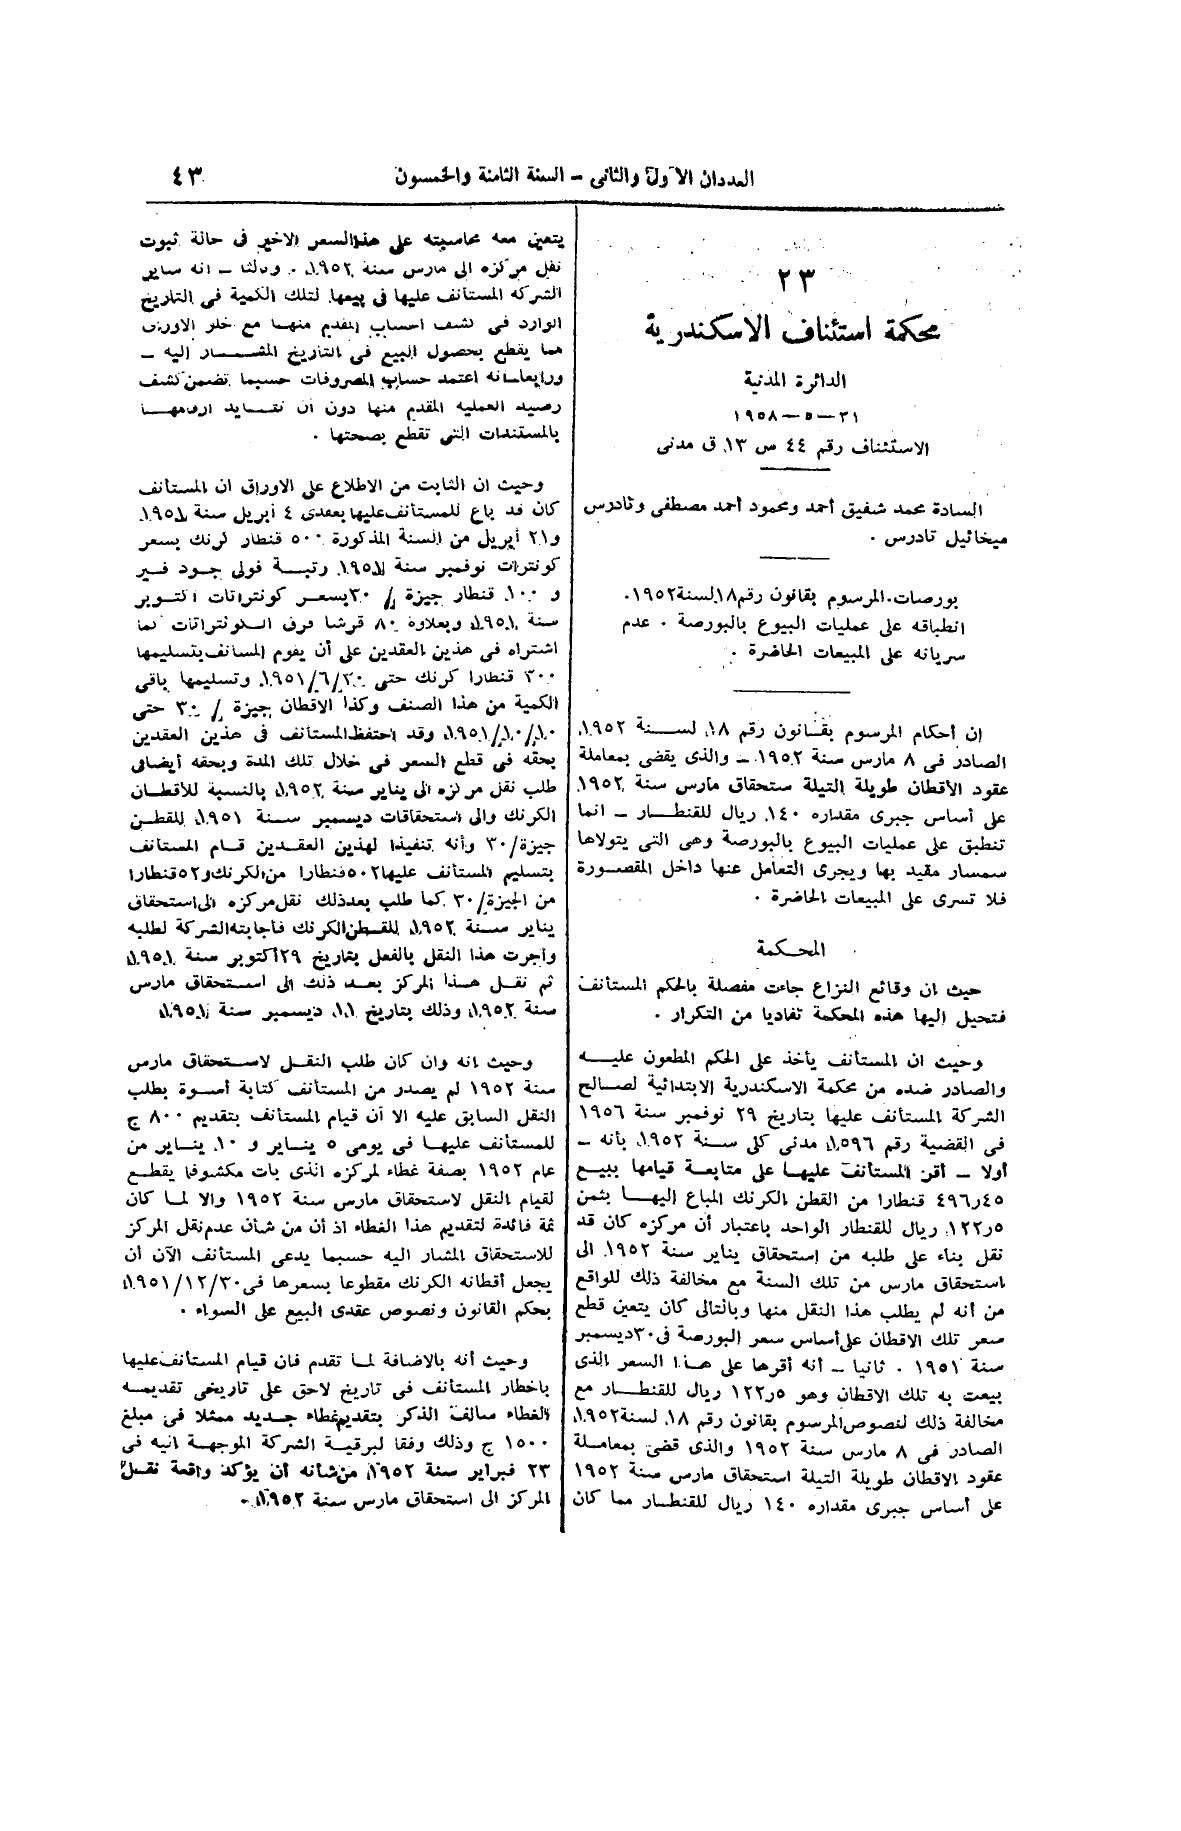 العددان الأول والثانى – السنة الثامنة والخمسون
٤٣
٢٣
محكمة استئناف الاسكندرية
الدائرة المدنية
٢١ – ٥ – ١٩٥٨
الاستئناف رقم ٤٤ س ١٣ ق مدنى
السادة محمد شفيق أحمد ومحمود أحمد مصطفى وتادرس
ميخائيل تادرس .
بورصات . المرسوم بقانون رقم ١٨ لسنة ١٩٥٢ .
انطباقه على عمليات البيوع بالبورصة . عدم
سريانه على المبيعات الحاضرة .
إن أحكام المرسوم بقانون رقم ١٨ لسنة ١٩٥٢
الصادر فى ٨ مارس سنة ١٩٥٢ – والذى يقضى بمعاملة
عقود الأقطان طويلة التيلة ستحقاق مارس سنة ١٩٥٢
على أساس جبرى مقداره ١٤٠ ريال للقنطار – انما
تنطبق على عمليات البيوع بالبورصة وهى التى يتولاها
سمسار مقيد بها ويجرى التعامل عنها داخل المقصورة
فلا تسرى على المبيعات الحاضرة .
المحكمة
حيث ان وقائع النزاع جاءت مفصلة بالحكم المستأنف
فتحيل اليها هذه المحكمة تفاديا من التكرار .
وحيث ان المستأنف يأخذ على الحكم المطعون عليه
والصادر ضده من محكمة الاسكندرية الابتدائية لصالح
الشركة المستأنف عليها بتاريخ ٢٩ نوفمبر سنة ١٩٥٦
فى القضية رقم ١٥٩٦ مدنى كلى سنة ١٩٥٢ بأنه –
أولا – أقر المستأنف عليها على متابعة قيامها ببيع
٤٩٦٫٤٥ قنطارا من القطن الكرنك المباع إليها بثمن
١٢٢٫٥ ريال للقنطار الواحد باعتبار أن مركزه كان قد
نقل بناء على طلبه من إستحقاق يناير سنة ١٩٥٢ الى
استحقاق مارس من تلك السنة مع مخالفة ذلك للواقع
من أنه لم يطلب هذا النقل منها وبالتالى كان يتعين قطع
سعر تلك الاقطان على أساس سعر البورصة فى ٣٠ ديسمبر
سنة ١٩٥١ . ثانيا – أنه أقرها على هذا السعر الذى
بيعت به تلك الاقطان وهو ١٢٢٫٥ ريال للقنطار مع
مخالفة ذلك لنصوص المرسوم بقانون رقم ١٨ لسنة ١٩٥٢
الصادر فى ٨ مارس سنة ١٩٥٢ والذى قضى بمعاملة
عقود الاقطان طويلة التيلة استحقاق مارس سنة ١٩٥٢
على أساس جبرى مقداره ١٤٠ ريال للقنطار مما كان
يتعين معه محاسبته على هذا السعر الاخير فى حالة ثبوت
نقل مركزه الى مارس سنة ١٩٥٢ . وثالثا – انه ساير
الشركة المستأنف عليها فى بيعها لتلك الكمية فى التاريخ
الوارد فى كشف الحساب المقدم منها مع خلو الاوراق
مما يقطع بحصول البيع فى التاريخ المشار إليه –
ورابعا – انه اعتمد حساب المصروفات حسبما تضمن كشف
رصيد العملية المقدم منها دون أن تتأيد ارقامها
بالمستندات التى تقطع بصحتها .
وحيث ان الثابت من الاطلاع على الاوراق ان المستأنف
كان قد باع للمستأنف عليها بعقدى ٤ أبريل سنة ١٩٥١
و٢١ أبريل من السنة المذكورة ٥٠٠ قنطار كرنك بسعر
كونترات نوفمبر سنة ١٩٥١ رتبة فولى جود فير
و ١٠٠ قنطار جيزة / ٣٠ بسعر كونتراتات اكتوبر
سنة ١٩٥١ وبعلاوة ٨٠ قرشا فرق الكونتراتات كما
اشتراه فى هذين العقدين على أن يقوم المستأنف بتسليمها
٣٠٠ قنطارا كرنك حتى ١٩٥١/٦/٣٠ وتسليمها باقى
الكمية من هذا الصنف وكذا الاقطان جيزة / ٣٠ حتى
١٩٥١/١٠/١٠ وقد احتفظ المستأنف فى هذين العقدين
بحقه فى قطع السعر فى خلال تلك المدة وبحقه أيضا فى
طلب نقل مركزه الى يناير سنة ١٩٥٢ بالنسبة للأقطان
الكرنك والى استحقاقات ديسمبر سنة ١٩٥١ للقطن
جيزة/٣٠ وأنه تنفيذا لهذين العقدين قام المستأنف
بتسليم المستأنف عليها ٥٠٢ قنطارا من الكرنك و٥٢ قنطارا
من الجيزة/٣٠ كما طلب بعد ذلك نقل مركزه الى استحقاق
يناير سنة ١٩٥٢ للقطن الكرنك فأجابته الشركة لطلبه
وأجرت هذا النقل بالفعل بتاريخ ٢٩ أكتوبر سنة ١٩٥١
ثم نقل هذا المركز بعد ذلك الى استحقاق مارس
سنة ١٩٥٢ وذلك بتاريخ ١١ ديسمبر سنة ١٩٥١
وحيث انه وان كان طلب النقل لاستحقاق مارس
سنة ١٩٥٢ لم يصدر من المستأنف كتابة أسوة بطلب
النقل السابق عليه الا أن قيام المستأنف بتقديم ٨٠٠ ج
للمستأنف عليها فى يومى ٥ يناير و ١٠ يناير من
عام ١٩٥٢ بصفة غطاء لمركزه الذى بات مكشوفا يقطع
لقيام النقل لاستحقاق مارس سنة ١٩٥٢ والا لما كان
ثمة فائدة لتقديم هذا الغطاء اذ أن من شأن عدم نقل المركز
للاستحقاق المشار اليه حسبما يدعى المستأنف الآن أن
يجعل أقطانه الكرنك مقطوعا بسعرها فى ١٩٥١/١٢/٣٠
بحكم القانون ونصوص عقدى البيع على السواء .
وحيث أنه بالاضافة لما تقدم فان قيام المستأنف عليها
باخطار المستأنف فى تاريخ لاحق على تاريخى تقديمه
الغطاء سالف الذكر بتقديم غطاء جديد ممثلا فى مبلغ
١٥٠٠ ج وذلك وفقا لبرقية الشركة الموجهة اليه فى
٢٣ فبراير سنة ١٩٥٢ من شأنه أن يؤكد واقعة نقل
المركز الى استحقاق مارس سنة ١٩٥٢ .